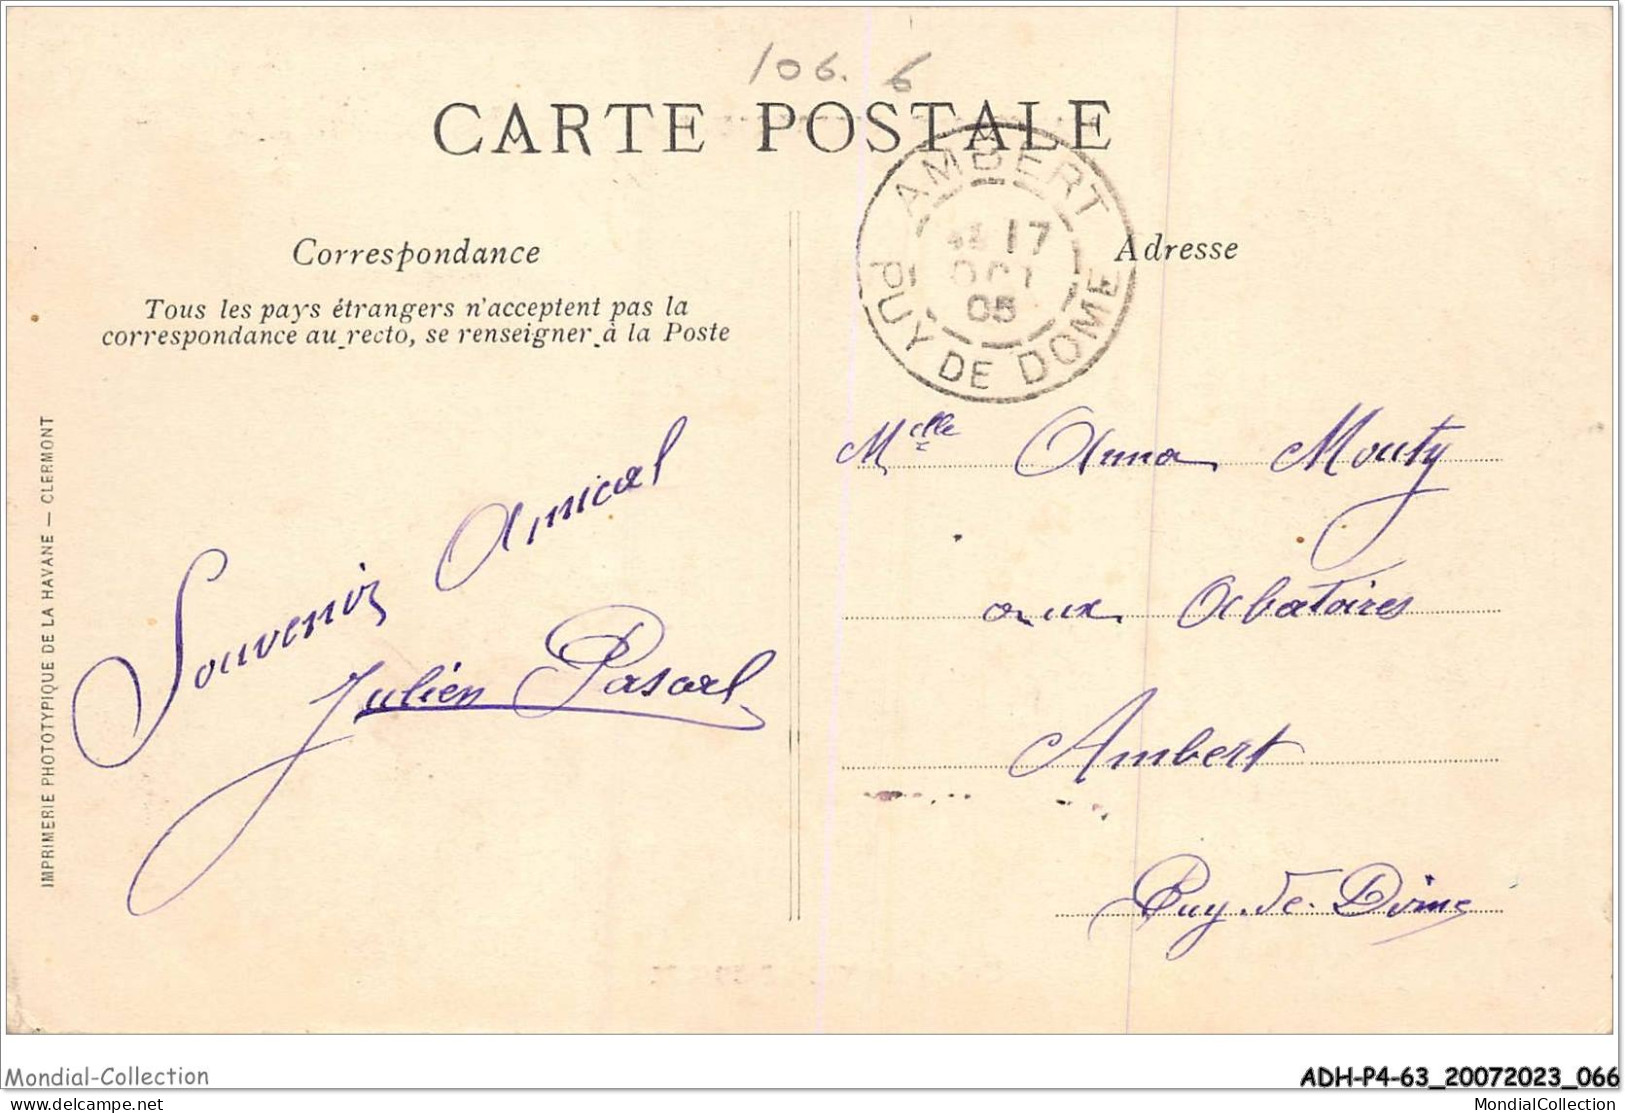 106. 6
CARTE POSTALE
AMBERT
17
OCT
05
PUY DE DOME
Correspondance
Tous les pays étrangers n'acceptent pas la
correspondance au recto, se renseigner à la Poste
Adresse
IMPRIMERIE PHOTOTYPIQUE DE LA HAVANE — CLERMONT
Souvenir Amical
Julien Pascal
Melle Anna Mouty
aux Abatoires
Ambert
Puy-de-Dôme
Mondial-Collection
ADH-P4-63_20072023_066
delcampe.net
MondialCollection